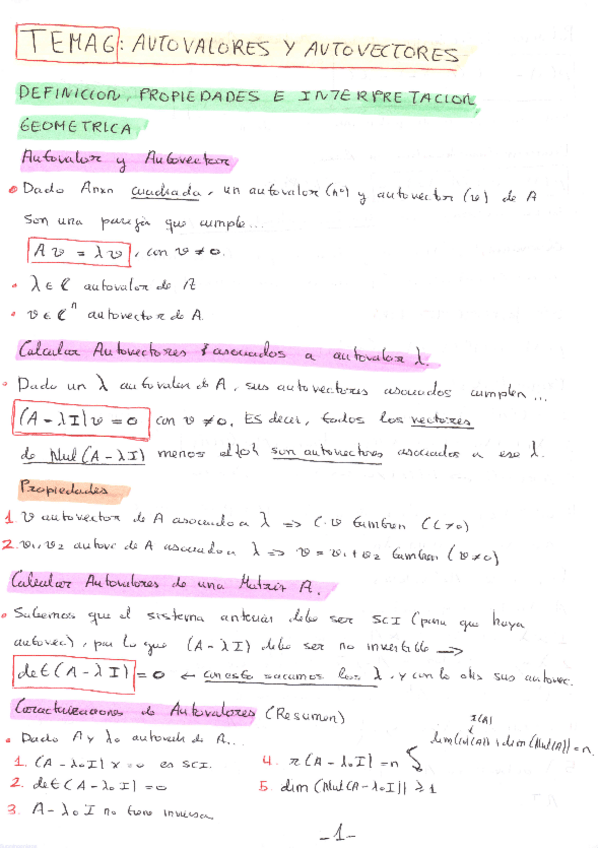 TEMA 6: AUTOVALORES Y AUTOVECTORES
DEFINICION, PROPIEDADES E INTERPRETACION
GEOMETRICA
Autovalor y Autovector
• Dado Anxn cuadrada, un autovalor (nº) y autovector (v) de A
son una pareja que cumple...
Av = λv, con v ≠ 0.
• λ ∈ ℂ autovalor de A
• v ∈ ℂⁿ autovector de A.
Calcular Autovectores asociados a autovalor λ.
• Dado un λ autovalor de A, sus autovectores asociados cumplen...
(A - λI)v = 0 con v ≠ 0. ES decir, todos los vectores
de Nul(A - λI) menos el {0} son autovectores asociados a ese λ.
Propiedades
1. v autovector de A asociado a λ => C·v tambien (C≠0)
2. v1, v2 autove de A asociado a λ => v = v1 + v2 tambien (v≠0)
Calcular Autovalores de una Matriz A.
• Sabemos que el sistema anterior debe ser SCI (para que haya
autovec), por lo que (A - λI) debe ser no invertible →
det(A - λI) = 0 ← con esto sacamos los λ, y con lo otro sus autovec.
Caracterizaciones de Autovalores (Resumen)
r(A)
dim(Col(A)) + dim(Nul(A)) = n.
• Dado A y λ0 autovalor de A...
1. (A - λ0I) x = 0 es SCI.
4. r(A - λ0I) < n
2. det(A - λ0I) = 0
5. dim(Nul(A - λ0I)) ≥ 1
3. A - λ0I no tiene inversa
-1-